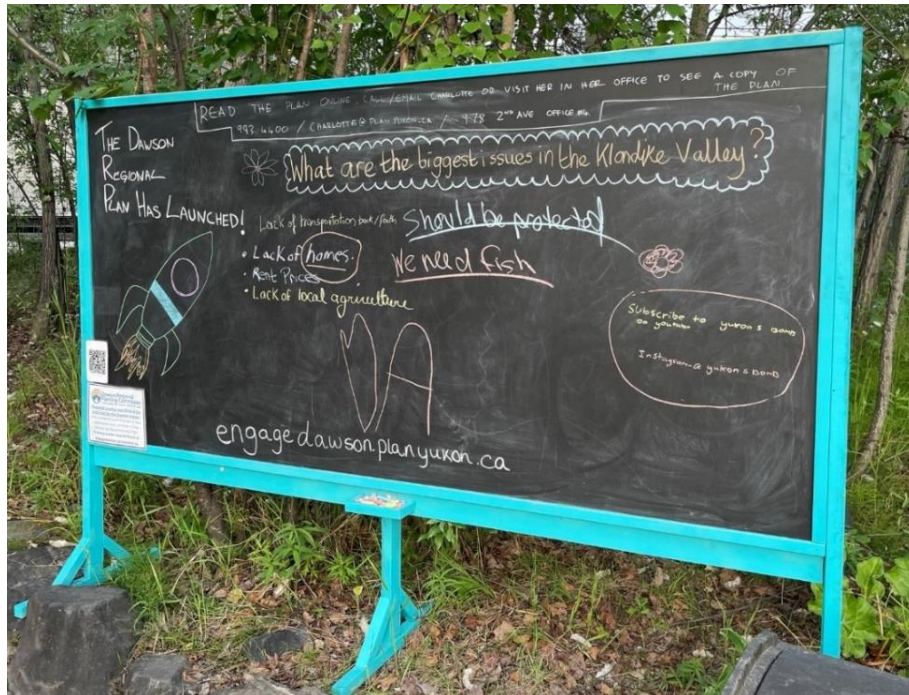 READ THE PLAN ONLINE CALL/EMAIL CHARLOTTE OR VISIT HER IN HER OFFICE TO SEE A COPY OF
THE PLAN
993 4400 / CHARLOTTE@PLANYUKON.CA / 928 2ND AVE OFFICE
THE DAWSON
REGIONAL
PLAN HAS LAUNCHED!
What are the biggest issues in the Klondike Valley?
Lack of transportation
Should be protected
• Lack of homes.
We need fish
• Rent Prices
• Lack of local agriculture
Subscribe to yukon s
on youtube
Instagram @ yukon s
engagedawson.planyukon.ca
Dawson Regional
Planning Commission